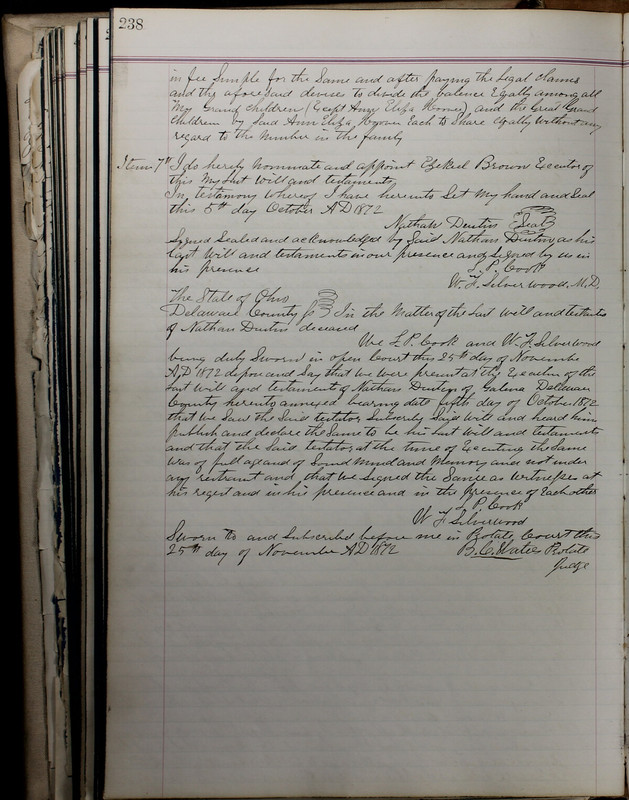 238
in fee simple for the Same and after paying the Legal Claims
and the aforesaid devises to divide the balence Equally among all
My Grand Children (Except Ann Eliza Hoover) and the Great Grand
Children by Said Ann Eliza Hoover Each to Share Equally without any
regard to the Number in the family
Item 7th I do hereby nominate and appoint Ezekiel Brown Executor of
this My last will and testament
In testimony whereof I have hereunto Set My hand and Seal
this 5th day October AD 1872
Nathan Dustin Seal
Signed Sealed and acknowledged by Said Nathan Dustin as his
last Will and testament in our presence and signed by us in
his presence
L. P. Cook
W. F. Silverwood M.D.
The State of Ohio
Delaware County ss In the Matter of the last will and testament
of Nathan Dustin deceased
We L P. Cook and W. F. Silverwood
being duly Sworn in open Court this 25th day of November
AD 1872 depose and Say that we were present at the Execution of the
last will and testament of Nathan Dustin of Galena Delaware
County hereunto annexed bearing date fifth day of October 1872
that we Saw the Said testator Subscribe Said will and heard him
publish and declare the Same to be his last will and testament
and that the Said testator at the time of Executing the Same
was of full age and of Sound Mind and Memory and not under
any restraint and that we signed the Same as witnesses at
his request and in his presence and in the presence of Each other
L P. Cook
W F Silverwood
Sworn to and Subscribed before me in Probate Court this
25th day of November AD 1872 B. C. Waters Probate
Judge